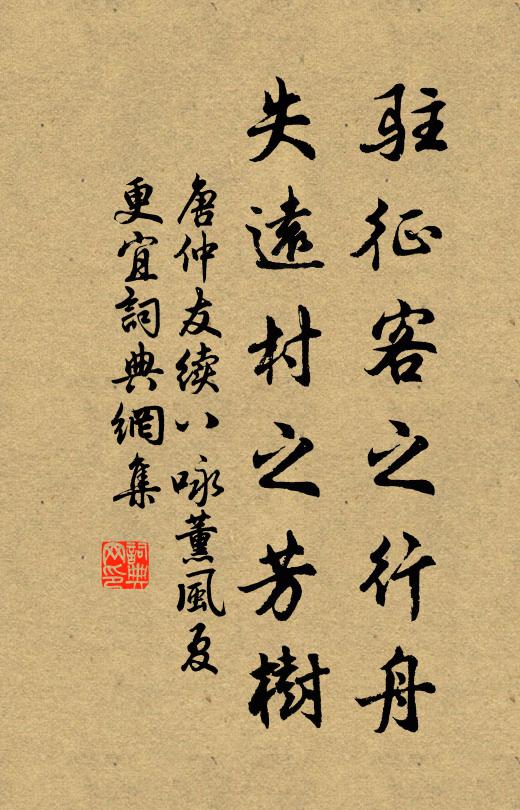 駐征客之行舟
失遠村之芳樹
唐仲友續八咏薰風夏
更宜詞典網集
詞典网印